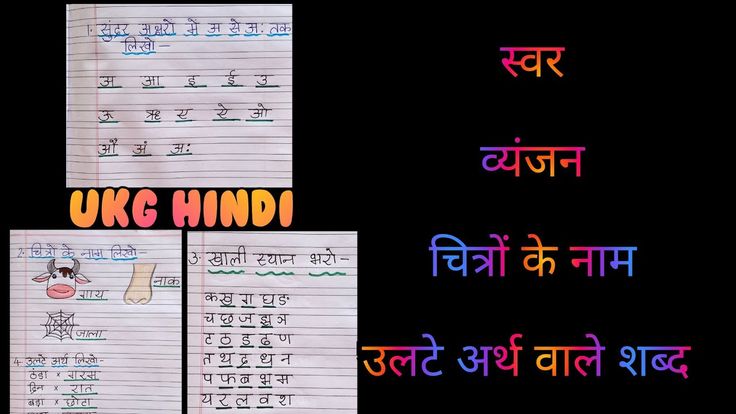 1. सुंदर अक्षरों में अ से अः तक
लिखो -
अ आ इ ई उ
ऊ ऋ ए ऐ ओ
औ अं अः
UKG HINDI
2. चित्रों के नाम लिखो-
गाय
नाक
जाला
4. उलटे अर्थ लिखो-
ठंडा × गरम
दिन × रात
बड़ा × छोटा
3. खाली स्थान भरो-
क ख ग घ ङ
च छ ज झ ञ
ट ठ ड ढ ण
त थ द ध न
प फ ब भ म
य र ल व श
स्वर
व्यंजन
चित्रों के नाम
उलटे अर्थ वाले शब्द